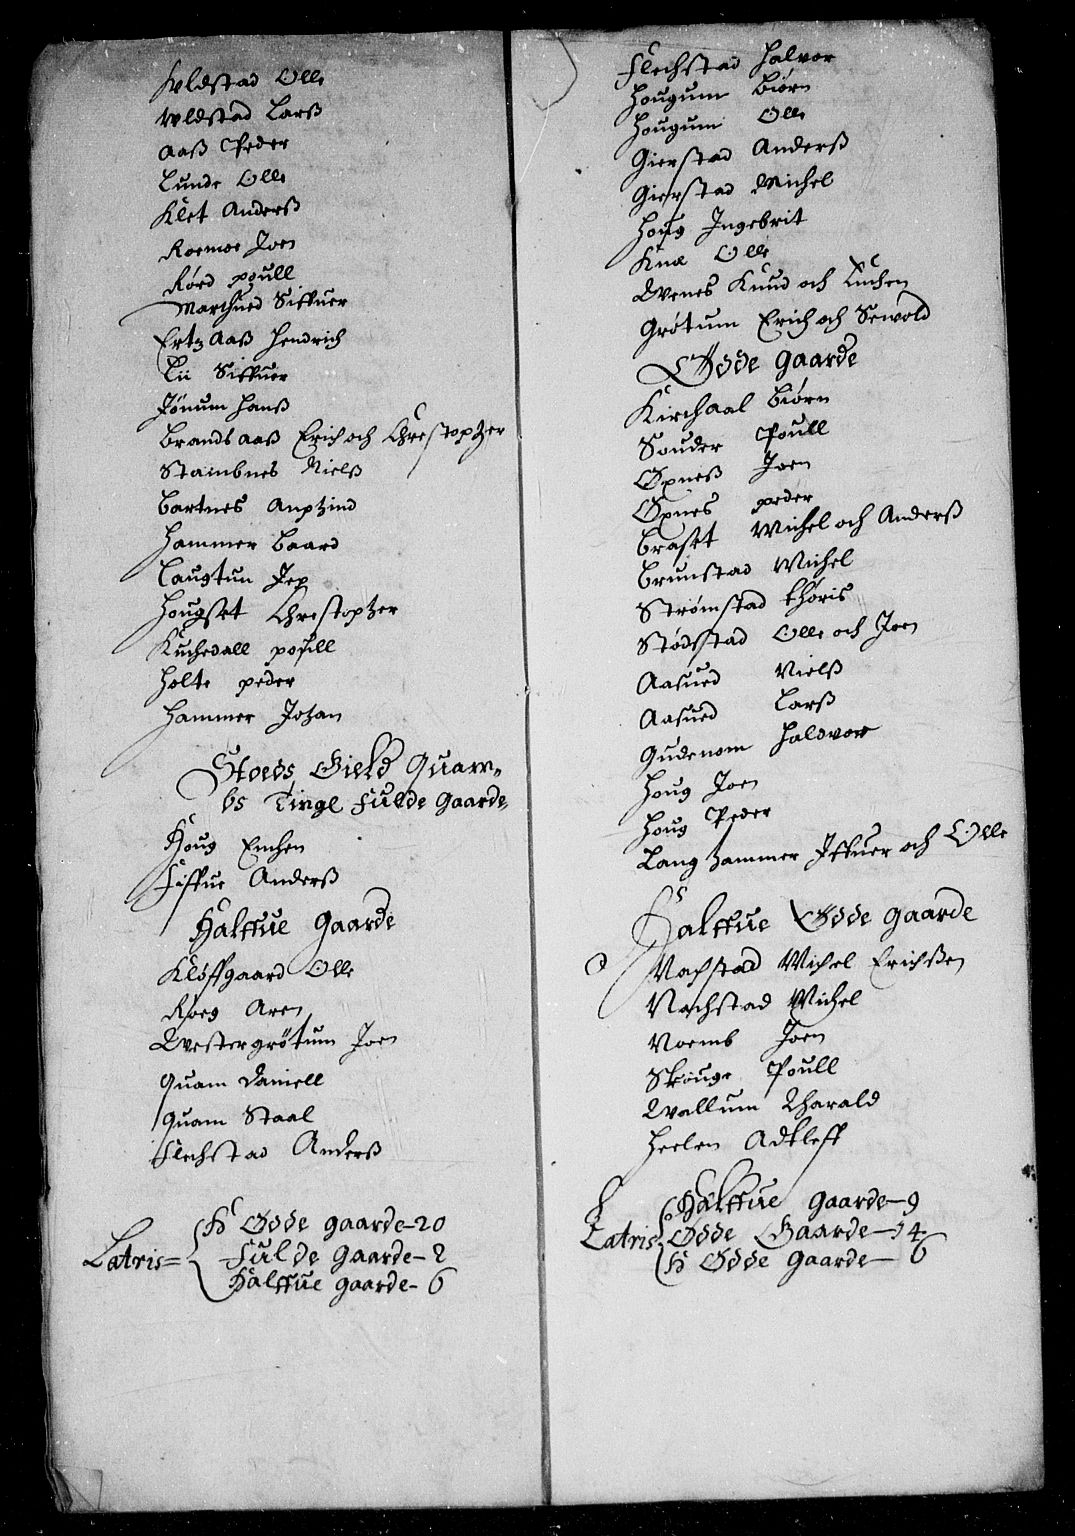 Huldstad Olle
Wldstad Larß
Aaß Peder
Lunde Olle
Klet Anderß
Roemoe Joen
Rørd poull
Marthued Siffuer
Ertz Aaß Hendrich
Lii Siffuer
Jönum Hanß
Brands aaß Erich och Chrestopher
Stambnes Nielß
Bartnes Anphind
Hammer Baard
Laugtun Jep
Hougset Chrestopher
Kuchedall poull
Holte peder
Hammer Johan
Stoeds Gield Quam-
bs Tingl Fulde Gaarde
Houg Emhen
Fiffue Anderß
Halffue Gaarde
Klöffgaard Olle
Roeg Aren
Westergrötum Joen
Quam Daniell
Quam Staal
Flechstad Anderß
Latris= H Øde gaarde-20
Fulde Gaarde-2
Halffue gaarde-6
Flechstad Halvor
Hougum Biørn
Hougum Olle
Gierstad Anderß
Gierstad Michel
Houg Ingebrit
Knæ Olle
Wenes Knud och Enchen
Grötum Erich och Sewold
Øde Gaarde
Kirchaal Biørn
Souder Poull
Øxneß Joen
Øxnes peder
Braset Michel och Anderß
Brunstad Michel
Strømstad thøris
Stødstad Olle och Joen
Aasued Nielß
Aasued Larß
Gudenom Haldvor
Houg Joen
Houg Peder
Langhammer Iffuer och Olle
Halffue Øde gaarde
Nachstad Michel Erichßen
Nachstad Michel
Noemb Joen
Skouge Poull
Wallum Harald
Heelen Adtleff
Latris Halffue Gaarde-9
Øde Gaarde-14
H Øde Gaarde-6